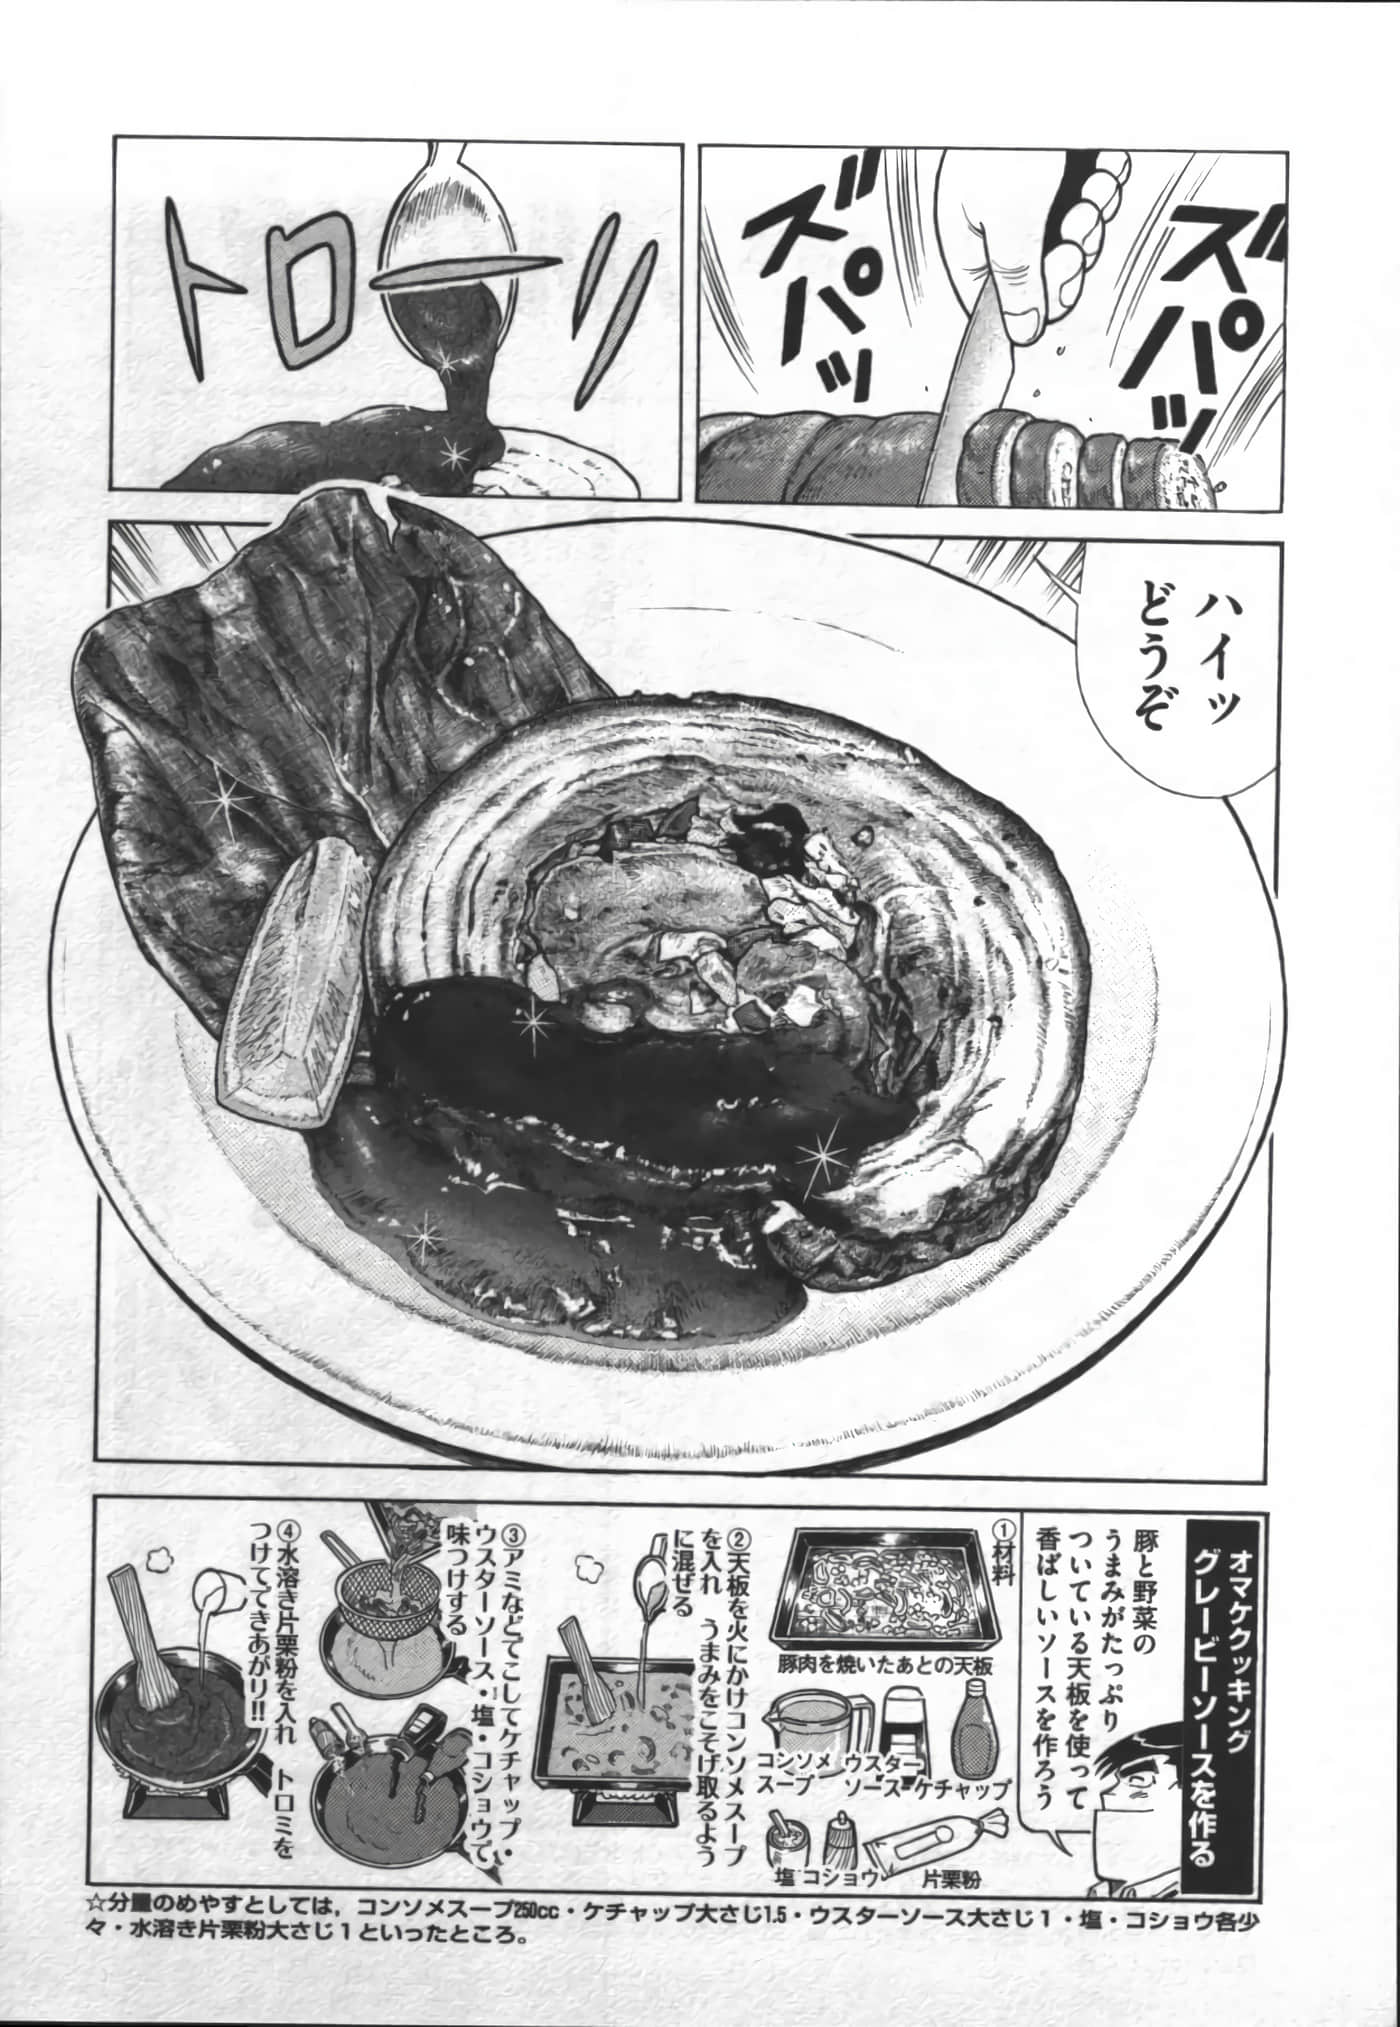 ズパッ
ズパッ
トローリ
ハイッ
どうぞ
オマケクッキング
グレービーソースを作る
豚と野菜の
うまみがたっぷり
ついている天板を使って
香ばしいソースを作ろう
①材料
豚肉を焼いたあとの天板
コンソメ
スープ
ウスター
ソース
ケチャップ
塩
コショウ
片栗粉
②天板を火にかけコンソメスープ
を入れ　うまみをこそげ取るよう
に混ぜる
③アミなどでこしてケチャップ・
ウスターソース・塩・コショウで
味つけする
④水溶き片栗粉を入れ　トロミを
つけてできあがり!!
☆分量のめやすとしては，コンソメスープ250cc・ケチャップ大さじ1.5・ウスターソース大さじ1・塩・コショウ各少
々・水溶き片栗粉大さじ1といったところ。